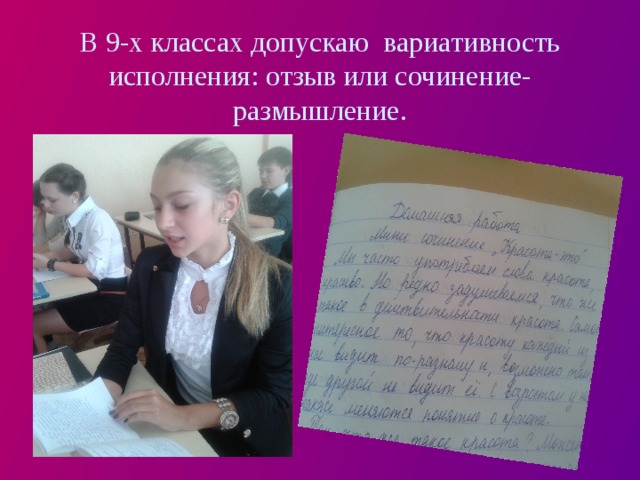 В 9-х классах допускаю вариативность
исполнения: отзыв или сочинение-
размышление.
Домашняя работа
Мини сочинение „Красота-это"
Мы часто употребляем слова красота,
красиво. Но редко задумываемся, что же
такое в действительности красота. Самое
интересное то, что красоту каждый из
нас видит по-разному и, возможно там
где другой не видит её. С возрастом у нас
также меняются понятие о красоте.
что же такое красота? Может